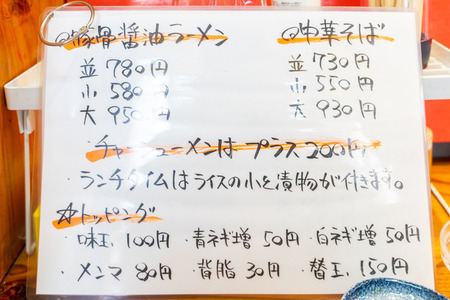 ◎豚骨醤油ラーメン ◎中華そば
並 780円 並 730円
小 580円 小 550円
大 950円 大 930円
・チャーシューメンは プラス200円
・ランチタイムはライスの小と漬物が付きます。
☆トッピング
・味玉 100円 ・青ネギ増 50円 ・白ネギ増 50円
・メンマ 80円 ・背脂 30円 ・替玉 150円